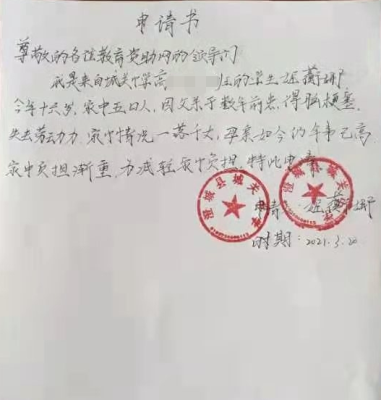 申请书
尊敬的各位教育资助网的领导们
我是来自城关中学高 班的学生
今年十六岁，家中五口人，因父亲于数年前患得脑梗塞，
失去劳动力 家中情况一落千丈，母亲如今的年事已高
家中负担渐重，为减轻家中负担，特此申请
澄城县城关中学
澄城县城关中学
申请
时期：2021.3.20